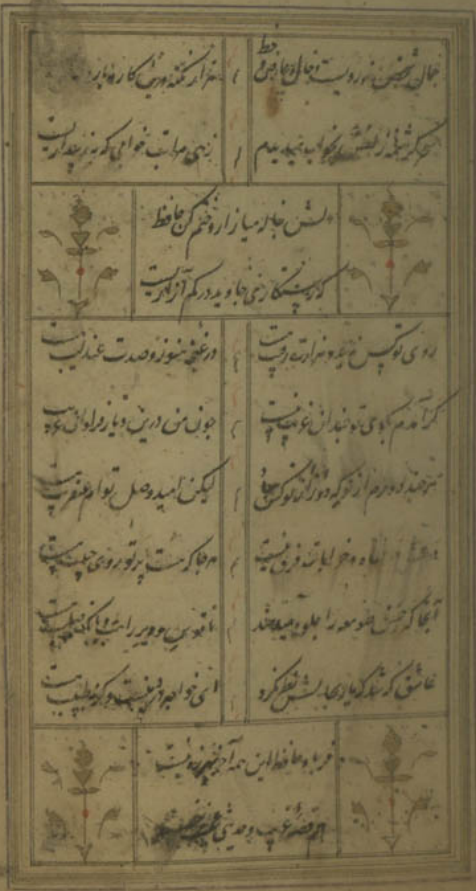 جمال شخص نه رویست و خال و عارض و خط هزار نکته درین کار و بار
سحر کرشمه زلفش بخواب میدیدم زهی مراتب خوابی که به ز بیداریست
دلش بناله میازار و ختم کن حافظ
که رستگاری جاوید در کم آزاریست
روی تو کس ندید و هزارت رقیب هست در غنچه هنوز و صدت عندلیب هست
گر آمدم بکوی تو چندان غریب نیست چون من درین دیار فراوان غریب هست
هرچند دورم از تو که دور از تو کس مباد لیکن امید وصل توام عنقریب هست
در عشق خانقاه و خرابات فرق نیست هرجا که هست پرتو روی حبیب هست
آنجا که صومعه را جلوه میدهند ناقوس و دیر راهب و صلیب هست
عاشق که شد که یار بحالش نظر نکرد ای خواجه درد نیست وگرنه طبیب هست
فریاد حافظ این همه آخر بهرزه نیست
هم قصه غریب و حدیثی عجیب هست